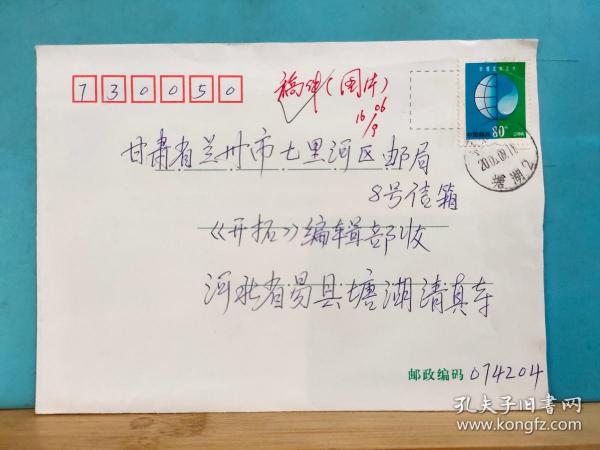 730050
稿件(图片)
06
16/9
80分
中国邮政
塘湖2
甘肃省兰州市七里河区邮局
8号信箱
《开拓》编辑部收
河北省易县塘湖清真寺
邮政编码 074204
孔夫子旧书网
www.kongfz.com